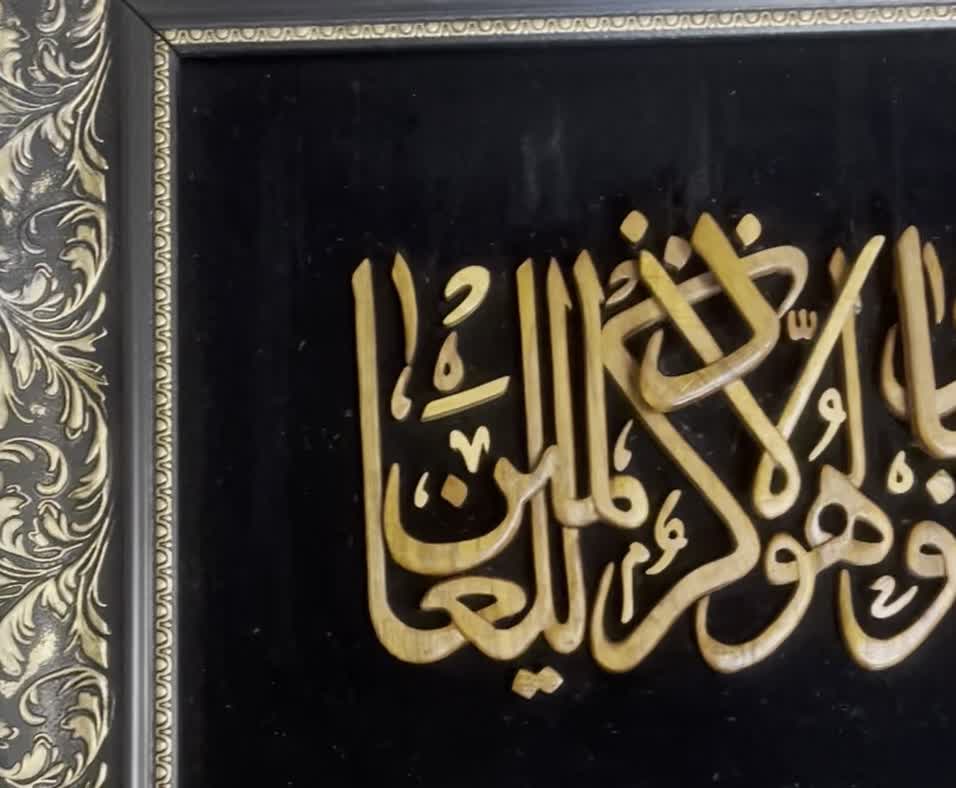 هو إلا ذكر للعالمين